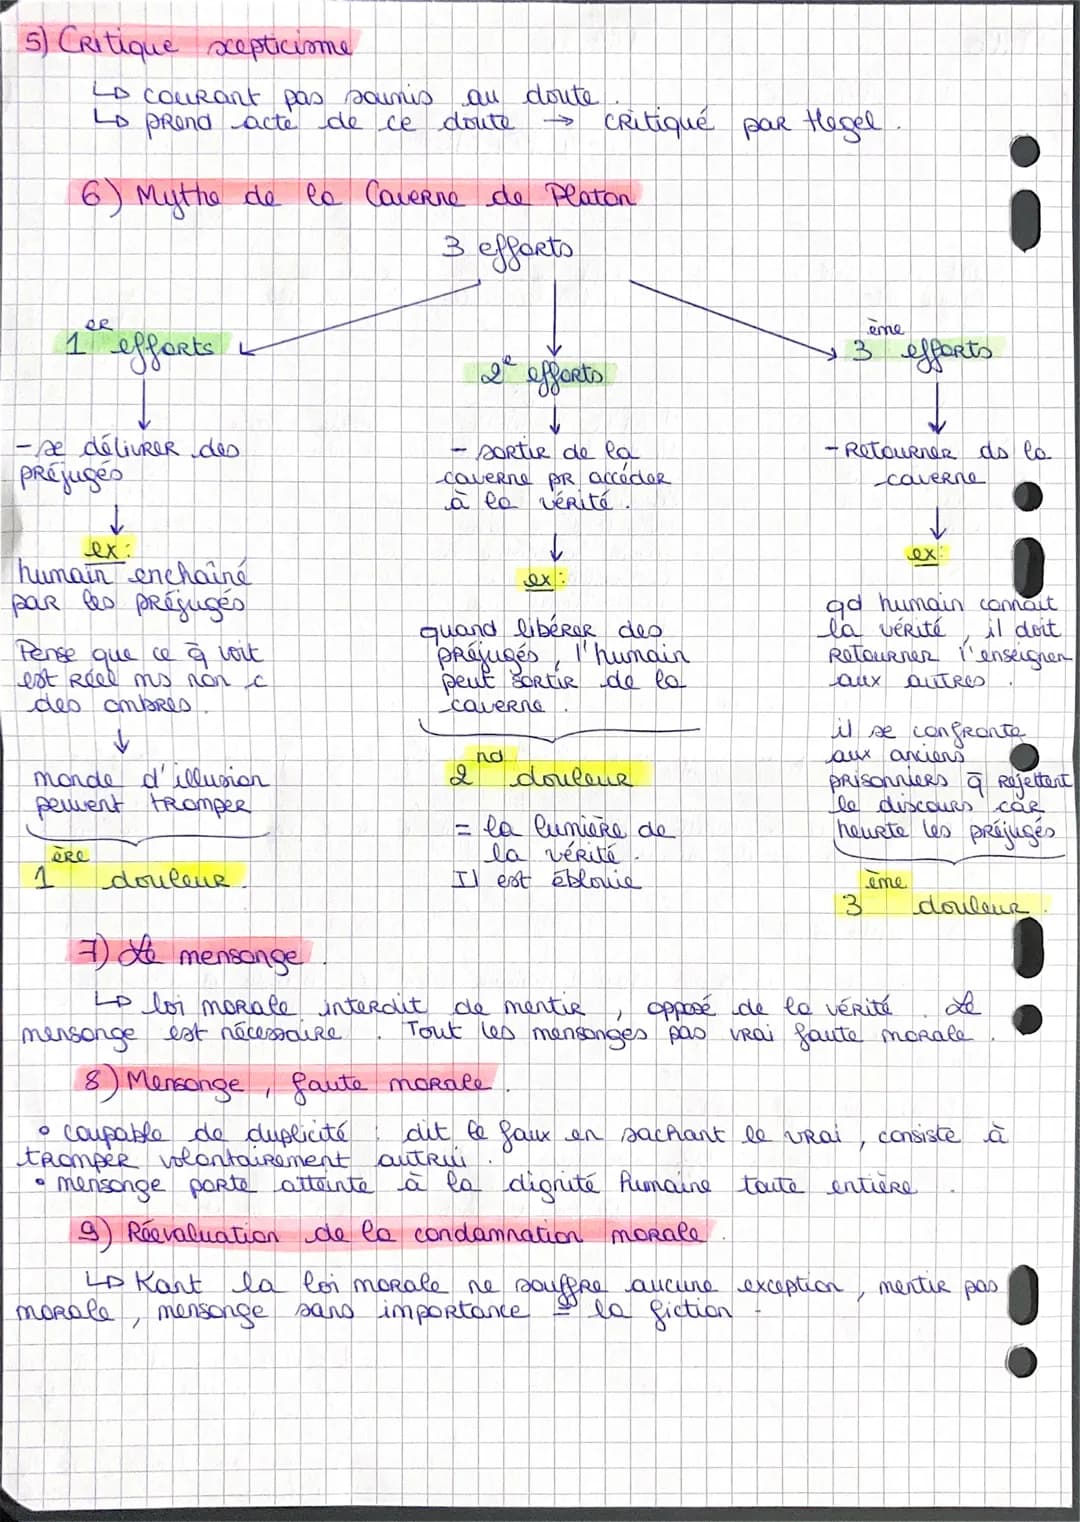 5) Critique scepticisme
↳ courant pas soumis au doute.
↳ prend acte de ce doute → critiqué par Hegel.
6) Mythe de la Caverne de Platon
3 efforts
1er efforts
- se délivrer des
préjugés
ex:
humain enchaîné
par les préjugés
Pense que ce q̄ voit
est réel ms non c
des ombres.
monde d'illusion
peuvent tromper
1ère douleur.
2e efforts
- sortir de la
caverne pr accéder
à la vérité.
ex:
quand libérer des
préjugés, l'humain
peut sortir de la
caverne.
2nd douleur
= la lumière de
la vérité.
Il est éblouie
3ème efforts
- Retourner ds la
caverne
ex:
qd humain connait
la vérité, il doit
retourner l'enseigner
aux autres.
il se confronte
aux anciens
prisonniers q̄ rejettent
le discours car
heurte les préjugés
3ème douleur.
7) Le mensonge.
↳ loi morale interdit de mentir, opposé de la vérité. Le
mensonge est nécessaire. Tout les mensonges pas vrai faute morale.
8) Mensonge, faute morale.
• coupable de duplicité : dit le faux en sachant le vrai, consiste à
tromper volontairement autrui.
• mensonge porte atteinte à la dignité humaine toute entière.
9) Réévaluation de la condamnation morale.
↳ Kant la loi morale ne souffre aucune exception, mentir pas
morale, mensonge sans importance = la fiction.